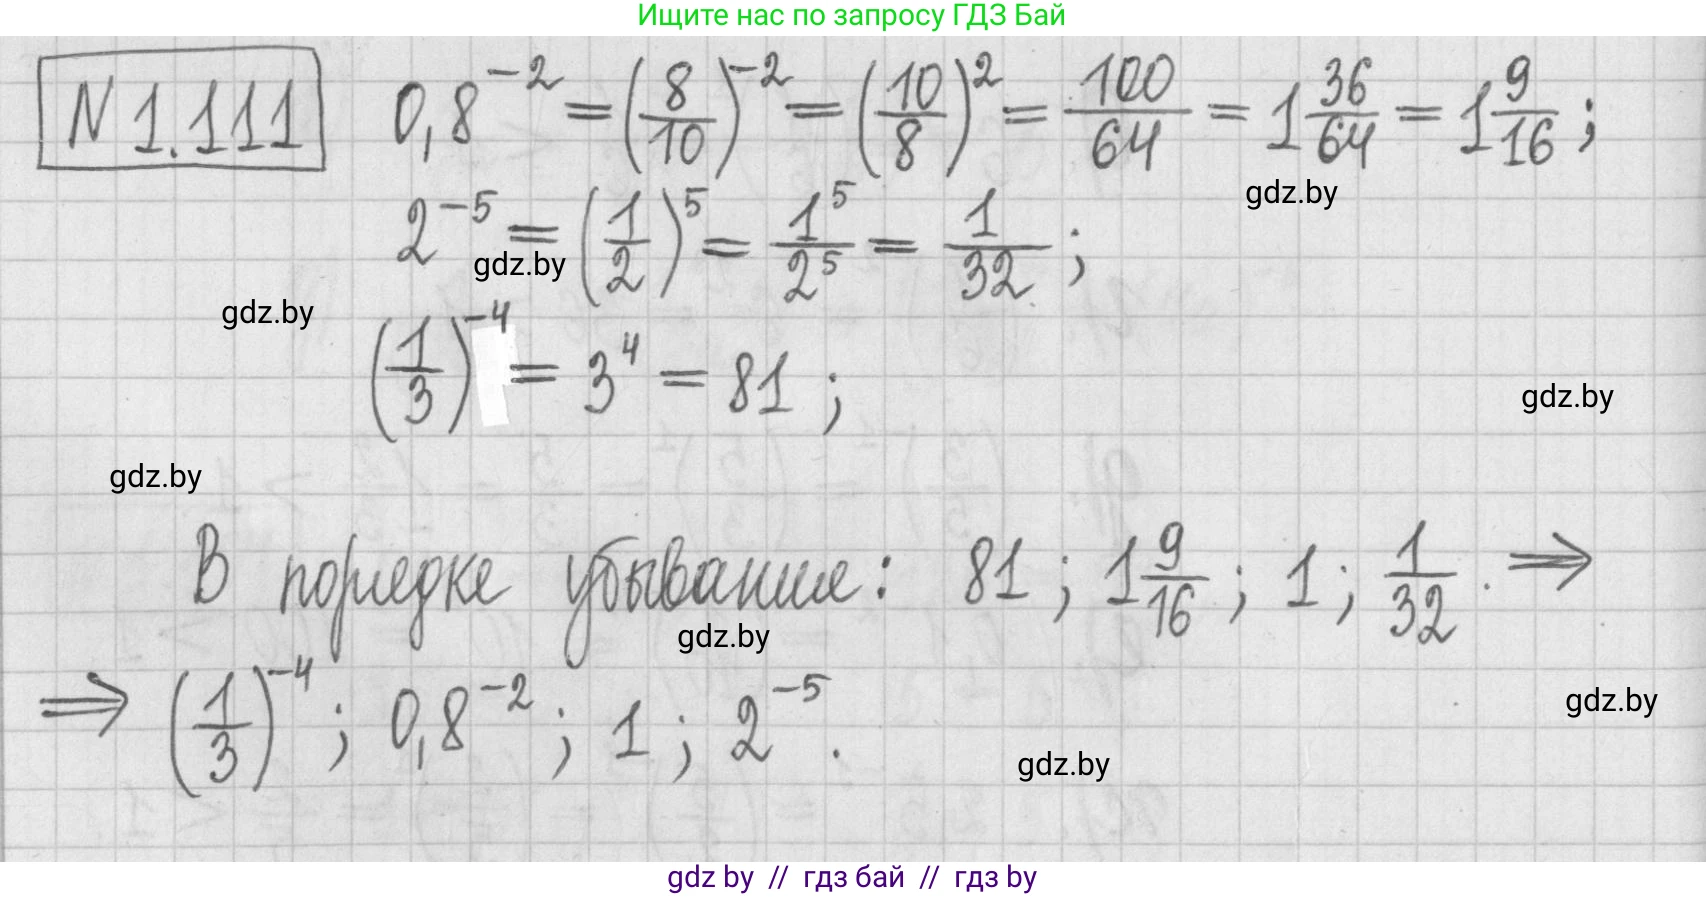 Ищите нас по запросу ГДЗ Бай
N 1.111 0,8^{-2} = (8/10)^{-2} = (10/8)^2 = 100/64 = 1 36/64 = 1 9/16 ;
gdz.by
2^{-5} = (1/2)^5 = 1^5/2^5 = 1/32 ;
gdz.by
gdz.by
(1/3)^{-4} = 3^4 = 81 ;
gdz.by
gdz.by
В порядке убывания: 81 ; 1 9/16 ; 1 ; 1/32 . ⇒
gdz.by
⇒ (1/3)^{-4} ; 0,8^{-2} ; 1 ; 2^{-5} .
gdz.by
gdz.by
gdz by // гдз бай // гдз by